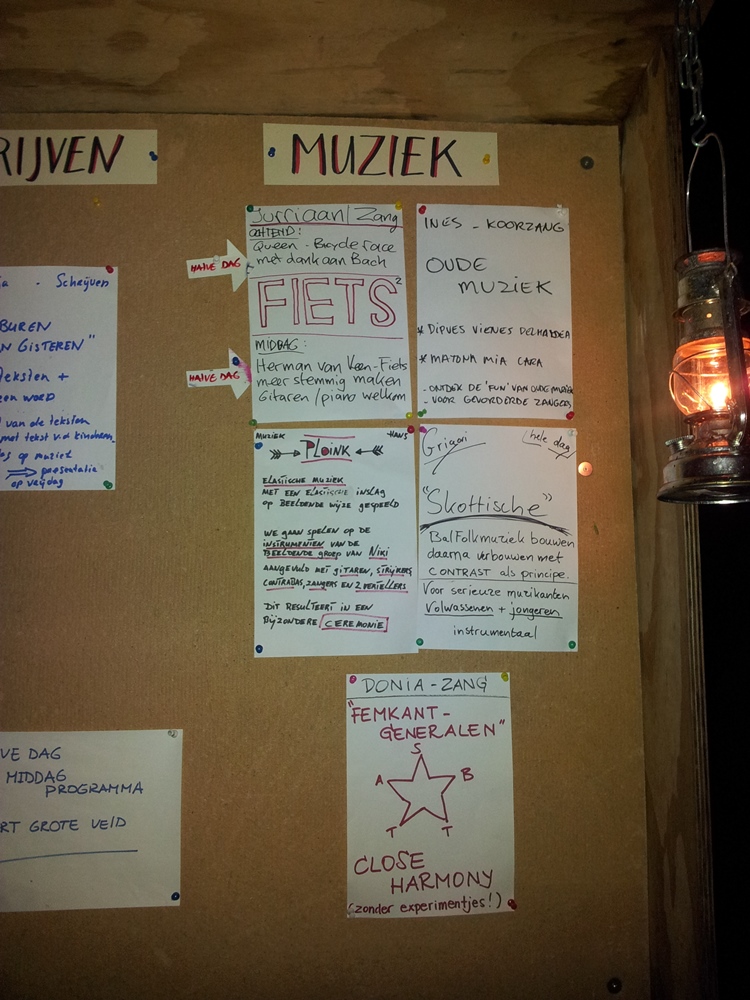 RIJVEN
MUZIEK
Jurriaan/Zang
OCHTEND:
Queen - Bicycle race
met dank aan Bach
HALVE DAG
FIETS²
MIDDAG:
Herman van Veen - Fiets
meerstemmig maken
Gitaren/piano welkom
HALVE DAG
INES - KOORZANG
OUDE
MUZIEK
* MATONA MIA CARA
- ONTDEK DE 'FUN' VAN OUDE MUZIEK
- VOOR GEVORDERDE ZANGERS
MUZIEK
HANS
PLOINK
ELASTISCHE MUZIEK
MET EEN ELASTISCHE INSLAG
OP BEELDENDE WIJZE GESPEELD
WE GAAN SPELEN OP DE
INSTRUMENTEN VAN DE
BEELDENDE GROEP VAN NIKI
AANGEVULD MET GITAREN, STRIJKERS,
CONTRABAS, ZANGERS EN 2 VERTELLERS
DIT RESULTEERT IN EEN
BIJZONDERE CEREMONIE
Grigori
hele dag
"Skottische"
BalFolkmuziek bouwen
daarna verbouwen met
CONTRAST als principe.
Voor serieuze muzikanten
Volwassenen + jongeren
instrumentaal
DONIA - ZANG
"FEMKANT-
GENERALEN"
S
A B
T T
CLOSE
HARMONY
(zonder experimentjes!)
- Schrijven
BUREN
N GISTEREN"
teksten +
een woord
van de teksten
met tekst v.d. kinderen
op muziek
⇒ presentatie
op vrijdag
VE DAG
MIDDAG
PROGRAMMA
RT GROTE VELD